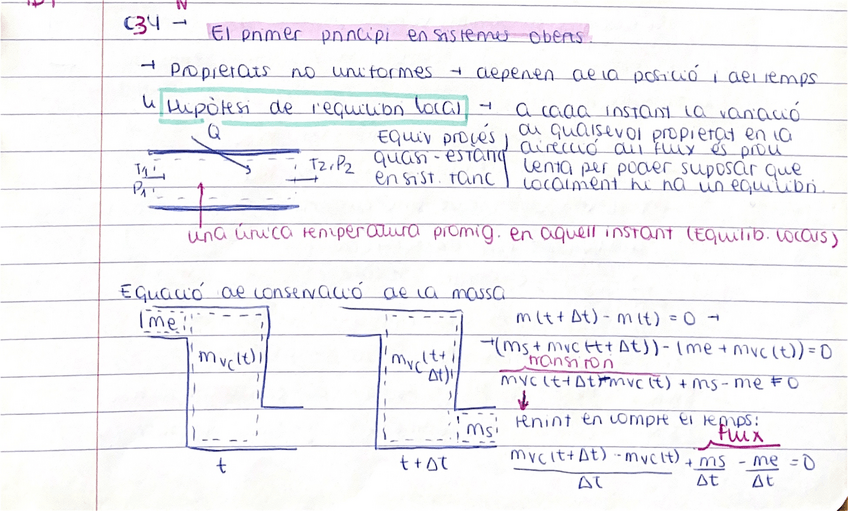 C34 → El primer principi en sistemes oberts.
→ Propietats no uniformes → depenen de la posició i del temps
↳ Hipòtesi de l'equilibri local → a cada instant la variació
Equiv procés
quasi-estàtic
en sist. tanc
du qualsevol propietat en la
direcció del flux és prou
lenta per poder suposar que
localment hi ha un equilibri.
Q
T1
P1
T2, P2
una única temperatura promig. en aquell instant (Equilib. locals)
Equació de conservació de la massa
me
mvc(t)
t
mvc(t+
Δt)
ms
t+Δt
m(t+Δt)-m(t)=0 →
→(ms+mvc(t+Δt))-(me+mvc(t))=0
transitori
mvc(t+Δt)-mvc(t)+ms-me=0
tenint en compte el temps:
flux
mvc(t+Δt)-mvc(t)/Δt + ms/Δt - me/Δt =0